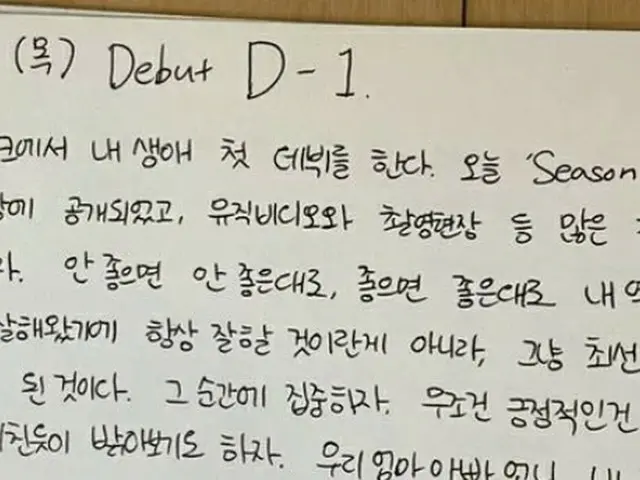 (목) Debut D-1.
에서 내 생애 첫 데뷔를 한다. 오늘 'Season
에 공개되었고, 뮤직비디오와 촬영현장 등 많은
안 좋으면 안 좋은대로, 좋으면 좋은대로 내
잘해왔기에 항상 잘할 것이란게 아니라, 그냥 최선
된 것이다. 그 순간에 집중하자. 무조건 긍정적인건
미친듯이 받아보기도 하자. 우리 엄마 아빠 언니